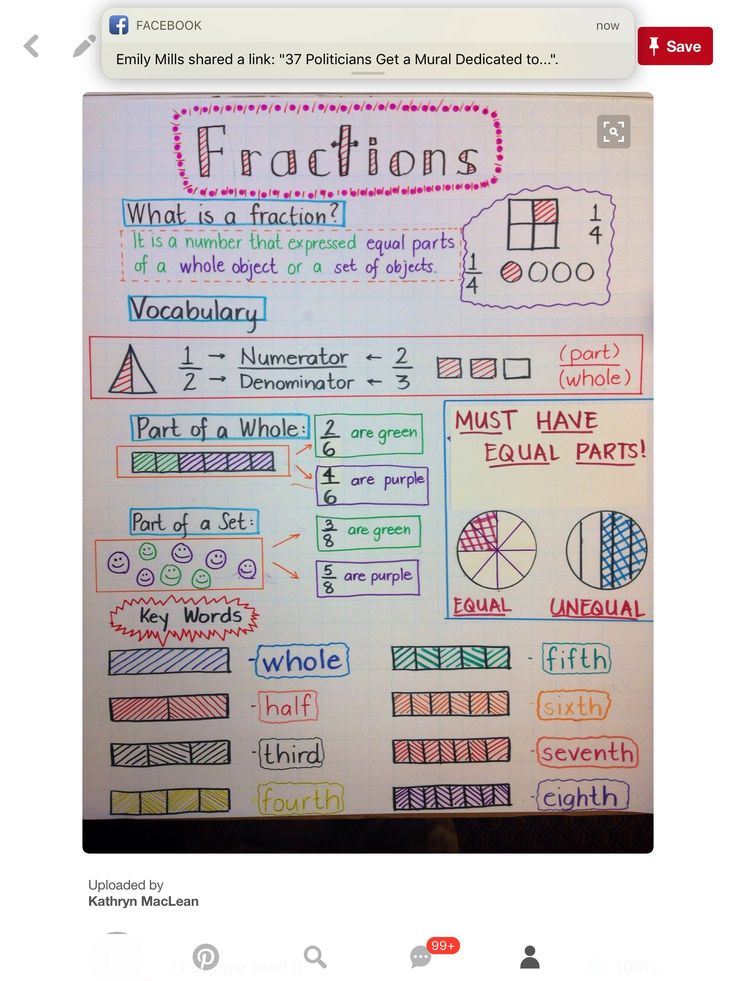 FACEBOOK
now
Emily Mills shared a link: "37 Politicians Get a Mural Dedicated to...".
Save
Fractions
What is a fraction?
It is a number that expressed equal parts
of a whole object or a set of objects.
1
4
1
4
Vocabulary
1 → Numerator ← 2
2 → Denominator ← 3
(part)
(whole)
Part of a Whole:
2
6
are green
4
6
are purple
MUST HAVE
EQUAL PARTS!
EQUAL
UNEQUAL
Part of a Set:
3
8
are green
5
8
are purple
Key Words
- whole
- half
- third
- fourth
- fifth
- sixth
- seventh
- eighth
Uploaded by
Kathryn MacLean
99+
K
11 people tried it
100%